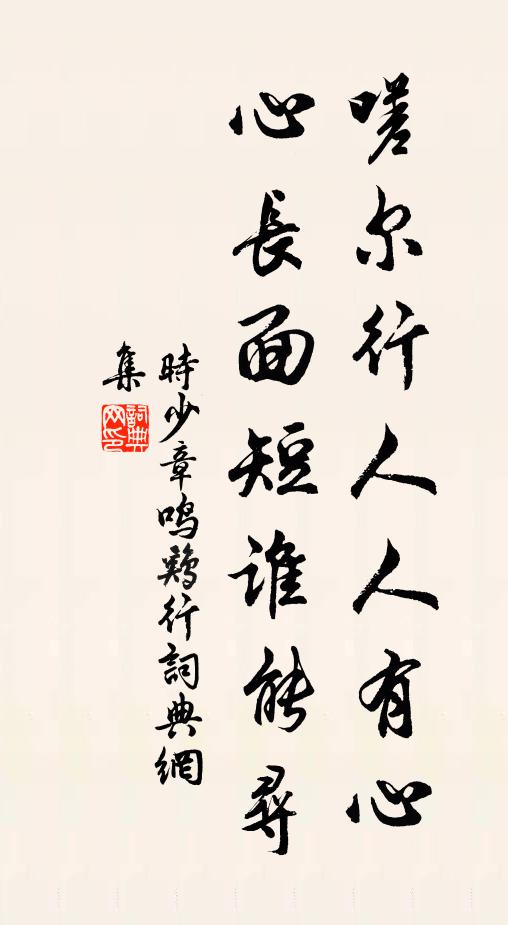 嗟尔行人人有心
心長面短谁能尋
時少章鸣鷄行詞典網
集
詞典网印